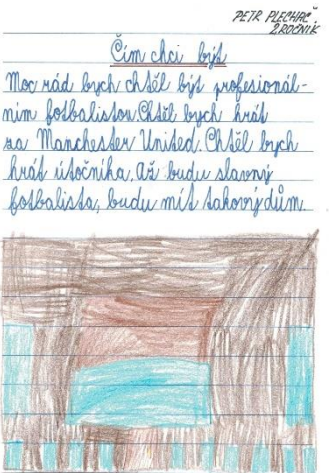 PETR PLECHAČ
2.ROČNÍK
Čím chci být
Moc rád bych chtěl být profesionál-
ním fotbalistou. Chtěl bych hrát
za Manchester United. Chtěl bych
hrát útočníka. Až budu slavný
fotbalista, budu mít takový dům.